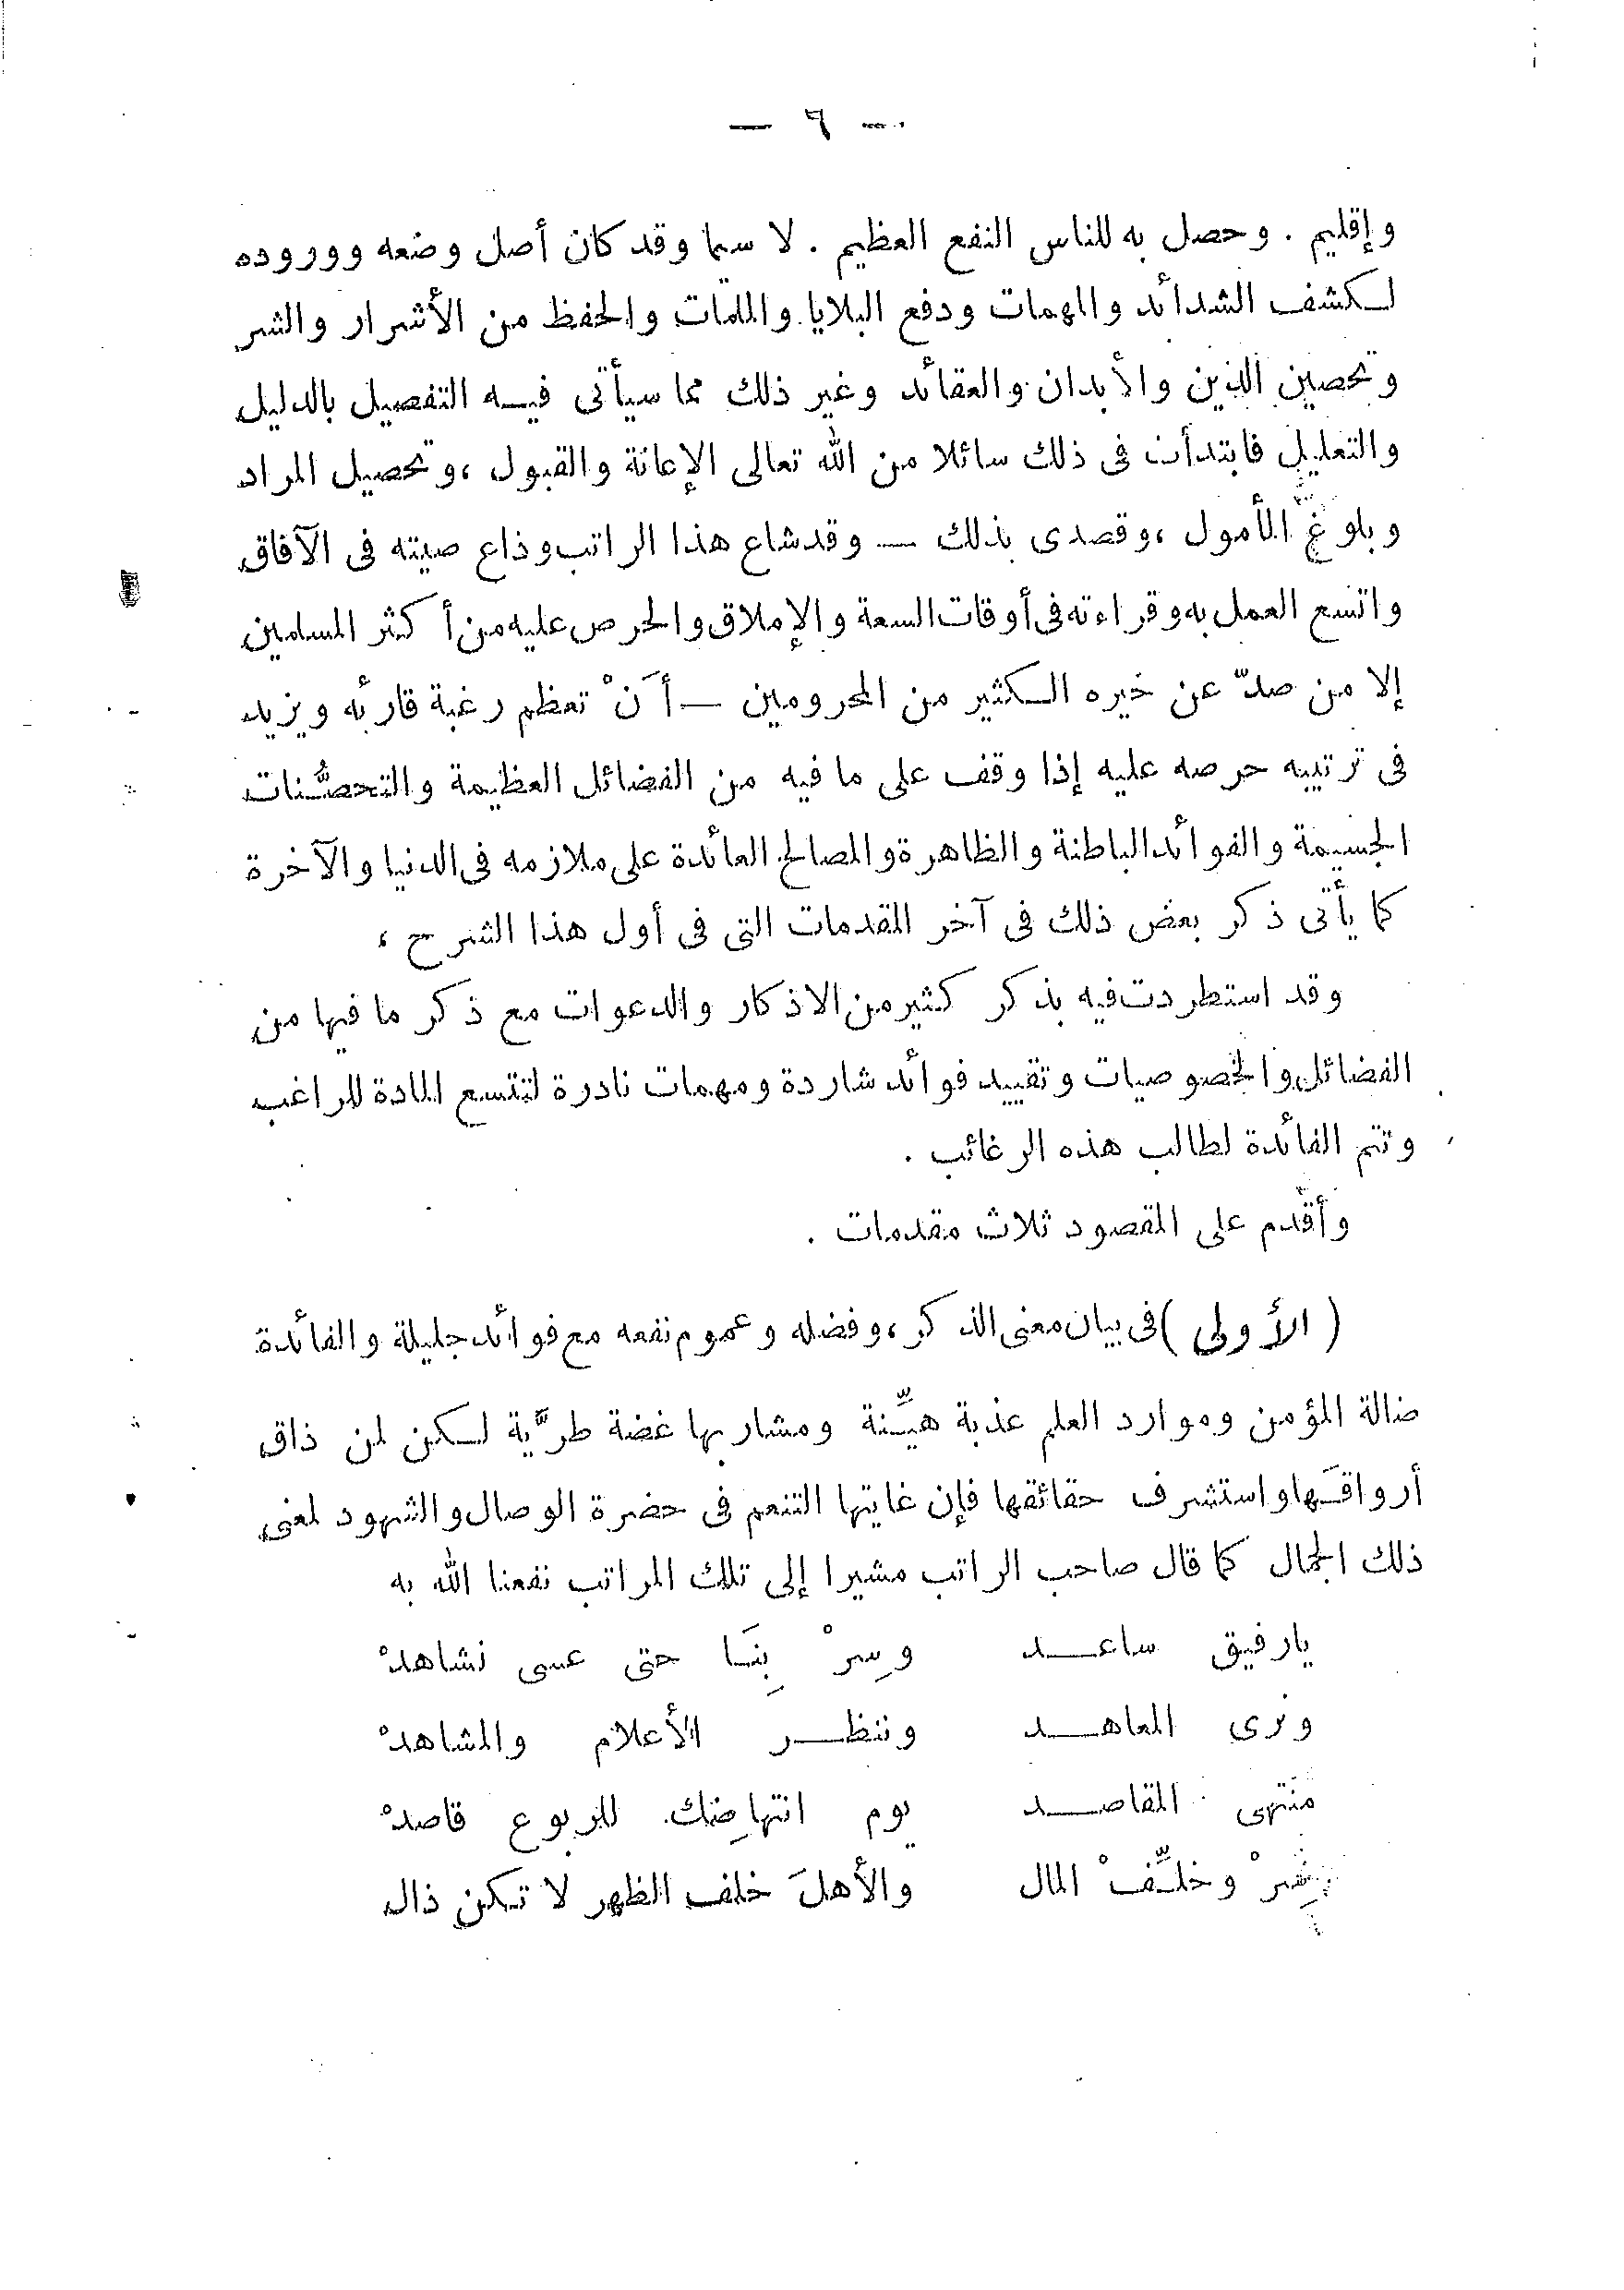 — ٦ —
وإقليم . وحصل به للناس النفع العظيم . لا سيما وقد كان أصل وضعه ووروده
لكشف الشدائد والمهمات ودفع البلايا والملمّات والحفظ من الأشرار والشر
وتحصين الدين والأبدان والعقائد وغير ذلك مما سيأتى فيه التفصيل بالدليل
والتعليل فابتدأت فى ذلك سائلا من الله تعالى الإعانة والقبول ، وتحصيل المراد
وبلوغ المأمول ، وقصدى بذلك — وقد شاع هذا الراتب وذاع صيته فى الآفاق
واتسع العمل به وقراءته فى أوقات السعة والإملاق والحرص عليه من أكثر المسلمين
إلا من صدّ عن خيره الكثير من المحرومين — أَنْ تعظم رغبة قارئه ويزيد
فى ترتيبه حرصه عليه إذا وقف على ما فيه من الفضائل العظيمة والتحصُّنات
الجسيمة والفوائد الباطنة والظاهرة والمصالح العائدة على ملازمه فى الدنيا والآخرة
كما يأتى ذكر بعض ذلك فى آخر المقدمات التى فى أول هذا الشرح ،
وقد استطردت فيه بذكر كثير من الاذكار والدعوات مع ذكر ما فيها من
الفضائل والخصوصيات وتقييد فوائد شاردة ومهمات نادرة لتتسع المادة للراغب
وتتم الفائدة لطالب هذه الرغائب .
وأقدم على المقصود ثلاث مقدمات .
( الأولى ) فى بيان معنى الذكر ، وفضله وعموم نفعه مع فوائد جليلة والفائدة
ضالة المؤمن وموارد العلم عذبة هيِّنة ومشاربها غضة طريَّة لكن لمن ذاق
أرواقَها واستشرف حقائقها فإن غايتها التنعم فى حضرة الوصال والشهود لمغنى
ذلك الجمال كما قال صاحب الراتب مشيرا إلى تلك المراتب نفعنا الله به
يارفيق ساعد وسِرْ بِنَا حتى عسى نشاهدْ
ونرى المعاهد وننظر الأعلام والمشاهدْ
منتهى المقاصد يوم انتهاضِك للربوع قاصدْ
سِرْ وخلِّفْ المال والأهلَ خلف الظهر لا تكن ذال